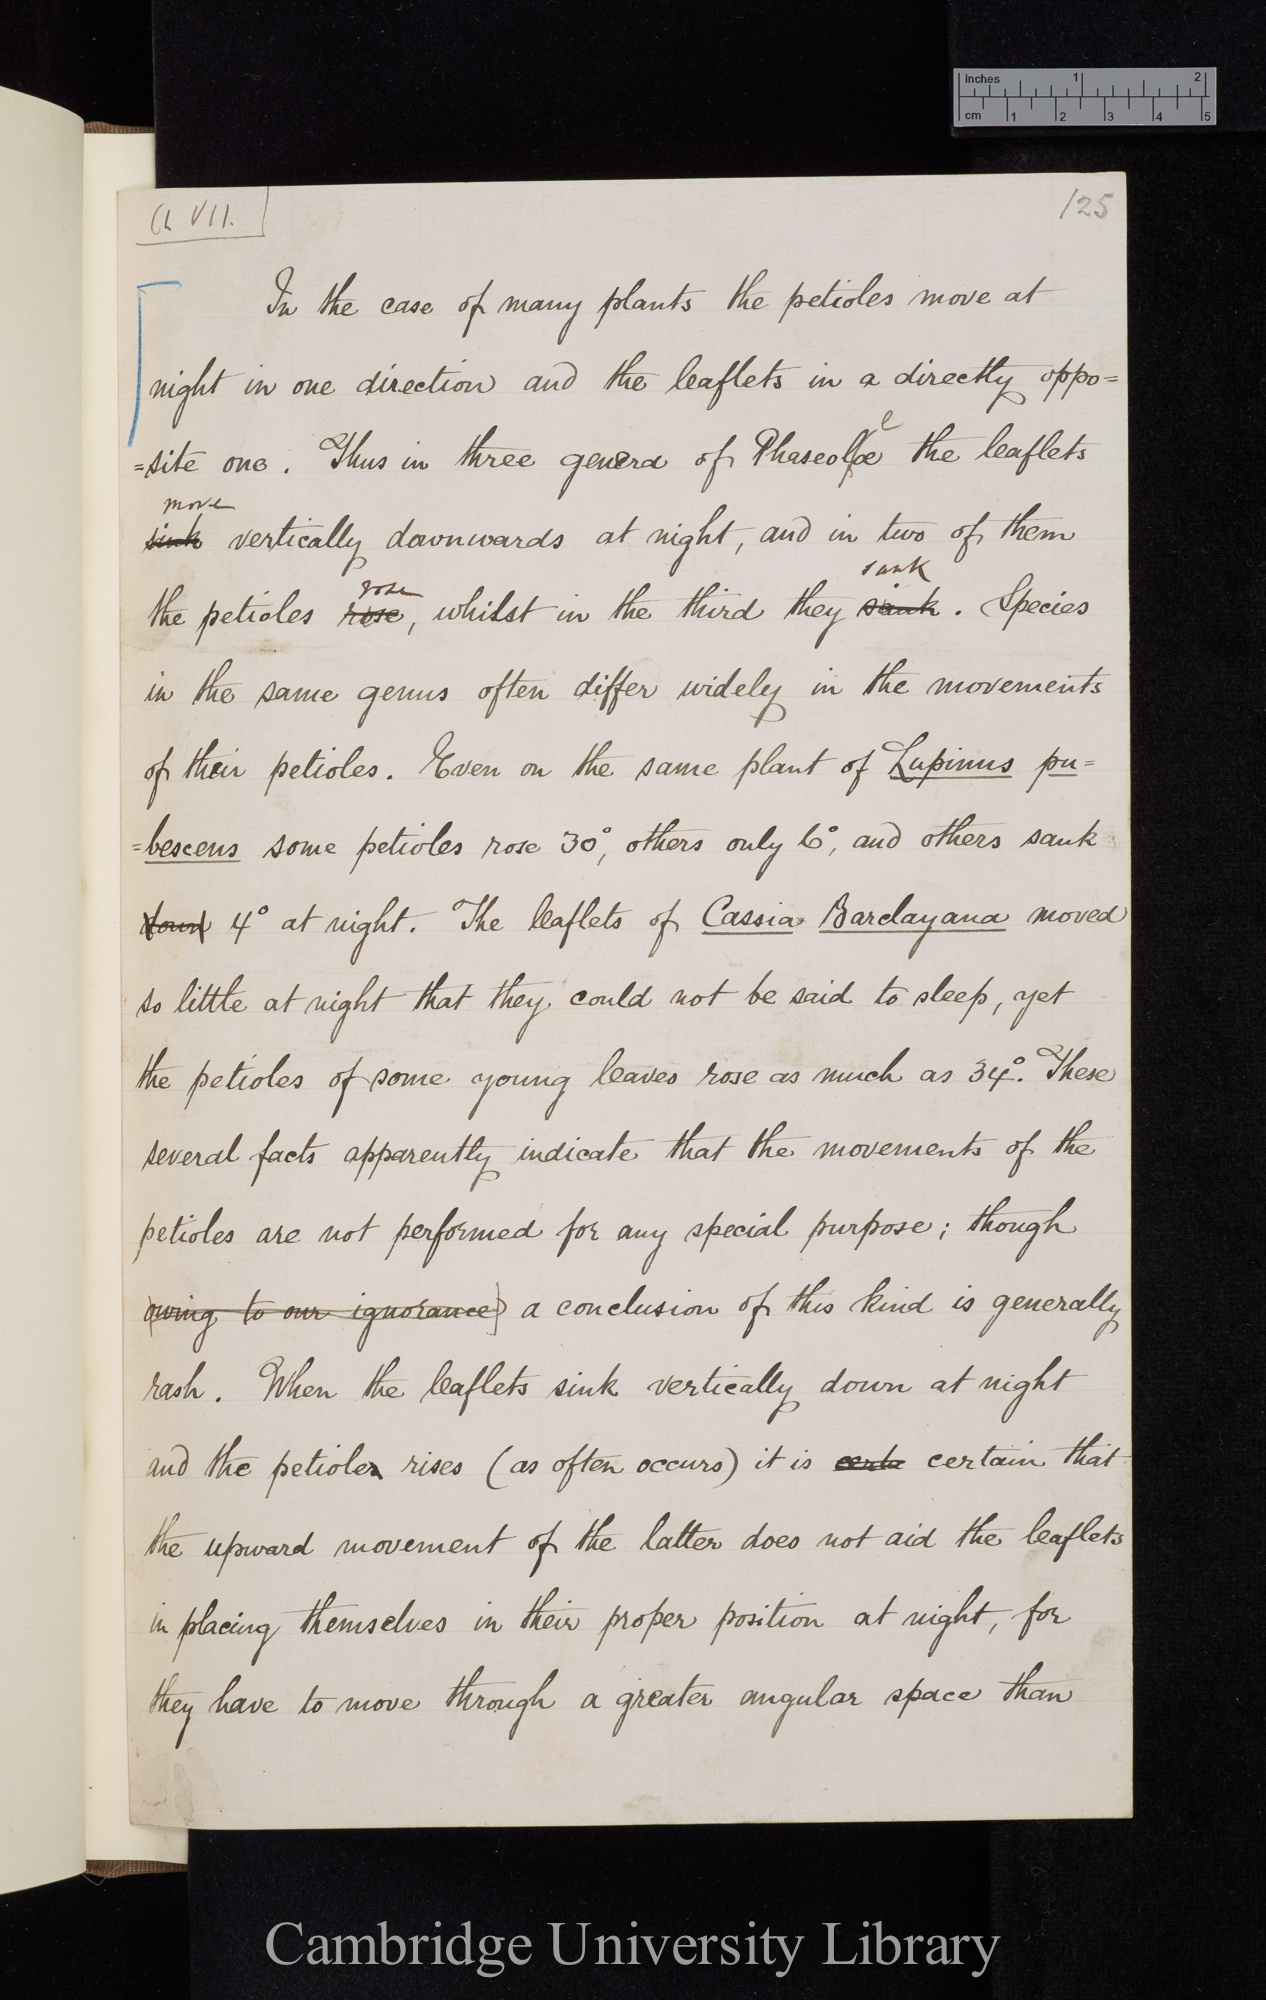 Inches 1 2
cm 1 2 3 4 5
Ch VII.
125
In the case of many plants the petioles move at
night in one direction and the leaflets in a directly oppo=
=site one. Thus in three genera of Phaseolæ the leaflets
e
move
sink vertically downwards at night, and in two of them
rose sank
the petioles rose, whilst in the third they sank. Species
in the same genus often differ widely in the movements
of their petioles. Even on the same plant of Lupinus pu=
=bescens some petioles rose 30°, others only 6°, and others sank
down 4° at night. The leaflets of Cassia Barclayana moved
so little at night that they could not be said to sleep, yet
the petioles of some young leaves rose as much as 34°. These
several facts apparently indicate that the movements of the
petioles are not performed for any special purpose; though
owing to our ignorance a conclusion of this kind is generally
rash. When the leaflets sink vertically down at night
and the petioles rises (as often occurs) it is certa certain that
the upward movement of the latter does not aid the leaflets
in placing themselves in their proper position at night, for
they have to move through a greater angular space than
Cambridge University Library